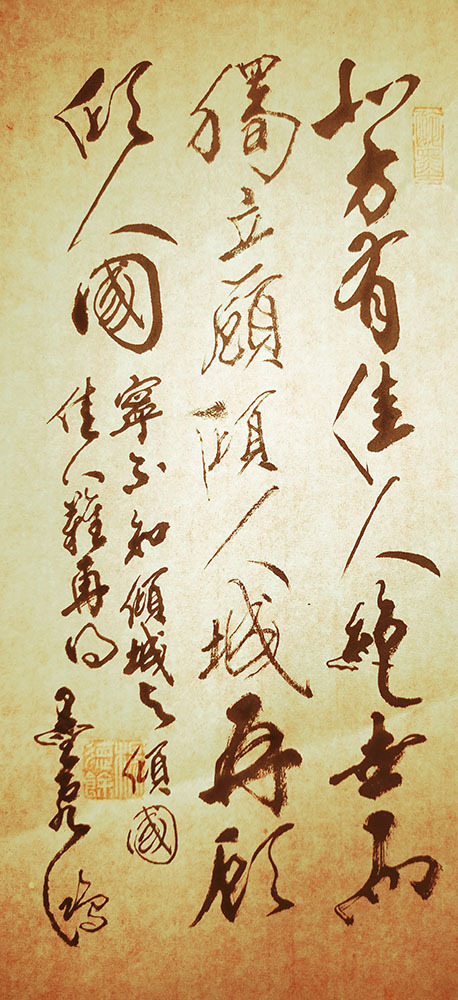 北方有佳人絕世而
獨立顧傾人城再顧
傾人國
寧不知傾城与傾國
佳人難再得